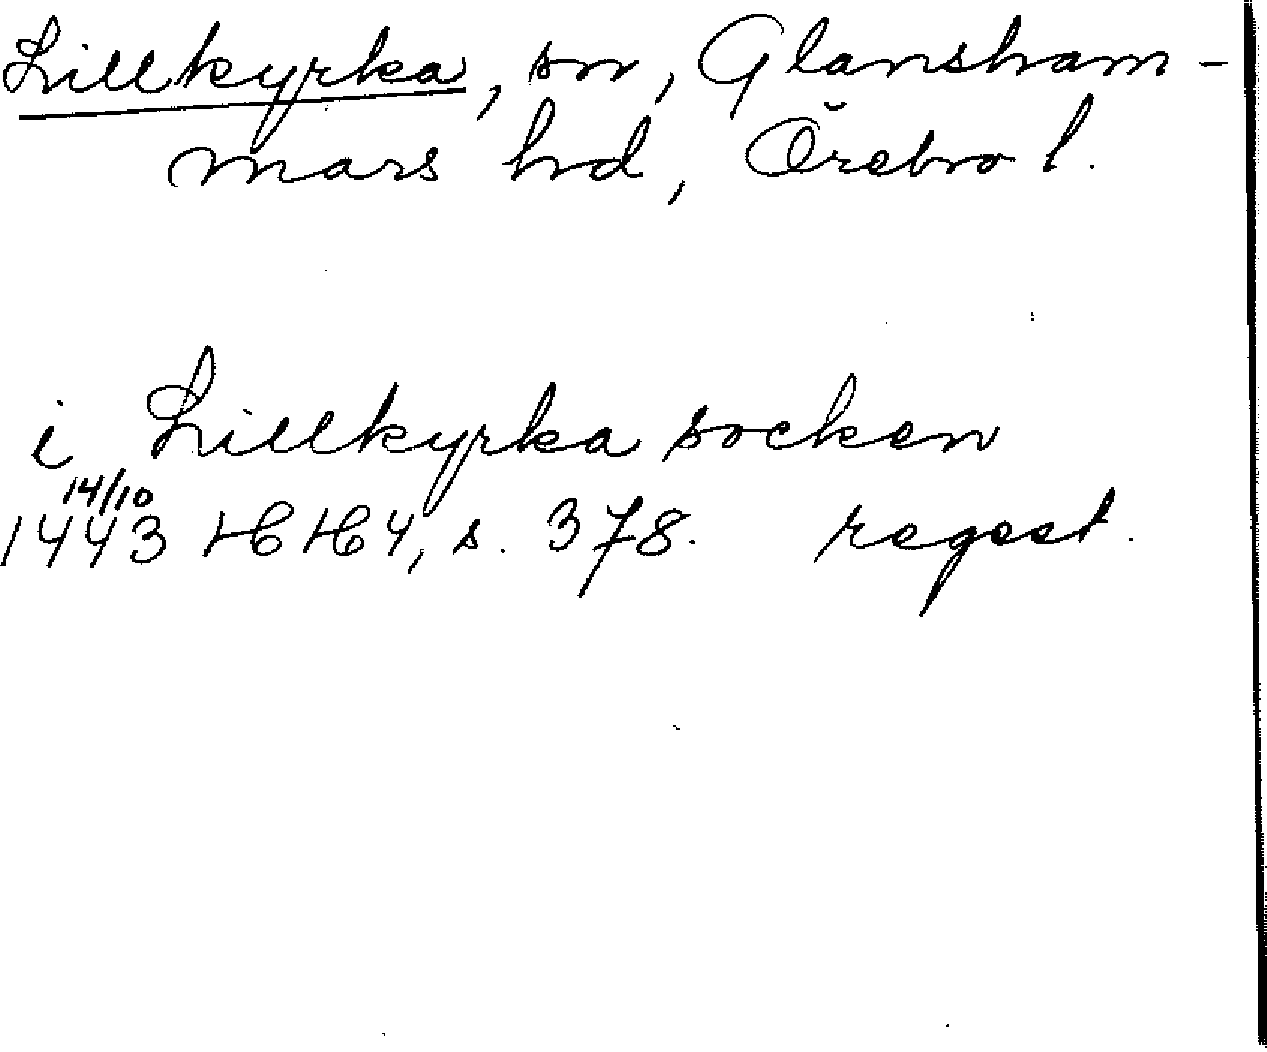 Lillkyrka, sn, Glansham-
mars hd, Örebro l.
i Lillkyrka socken
14/10
1443 HH 4, s. 378. regest.